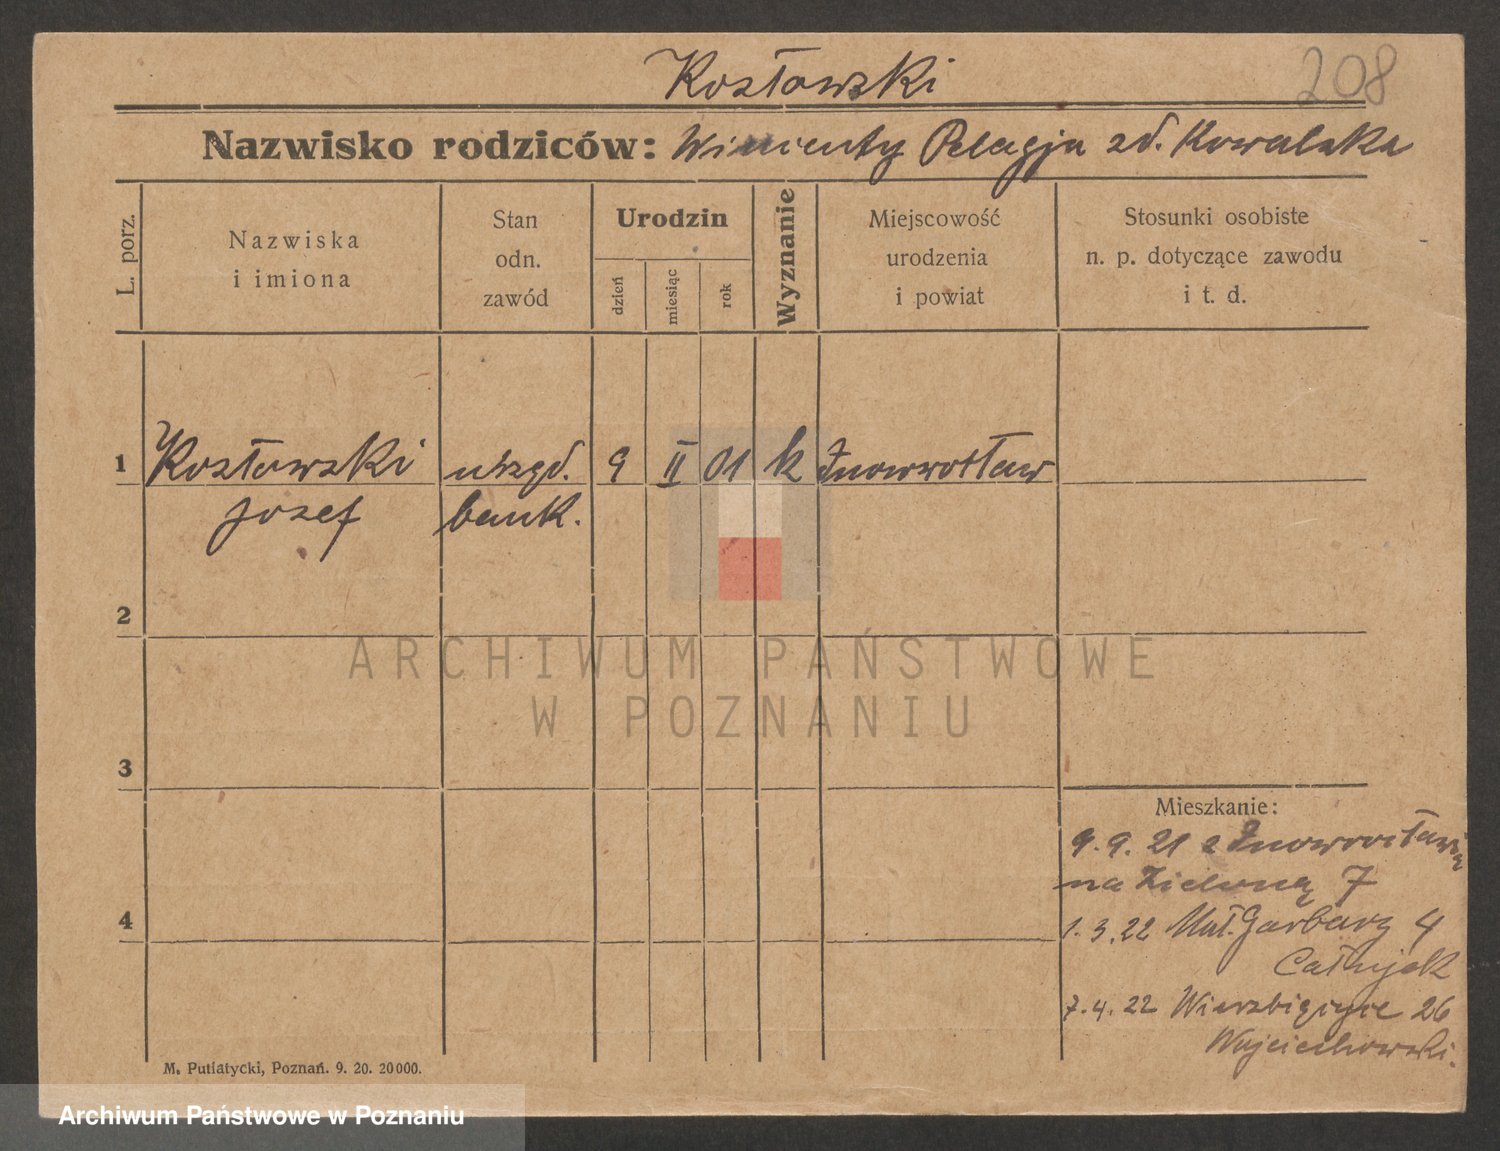 Kosłowski
208
Nazwisko rodziców: Wincenty Pelagja zd. Kowalska
L. porz.
Nazwiska
i imiona
Stan
odn.
zawód
Urodzin
dzień
miesiąc
rok
Wyznanie
Miejscowość
urodzenia
i powiat
Stosunki osobiste
n. p. dotyczące zawodu
i t. d.
1 Kosłowski urzęd. 9 II 01 k Inowrocław
Jozef bank.
2
ARCHIWUM PAŃSTWOWE
W POZNANIU
3
Mieszkanie:
9. 9. 21 z Inowrocławia
na Zieloną 7
4
1. 3. 22 Mał. Garbary 4
7. 4. 22 Wierzbięcice 26
Wojciechowski.
M. Putiatycki, Poznań. 9. 20. 20000.
Archiwum Państwowe w Poznaniu